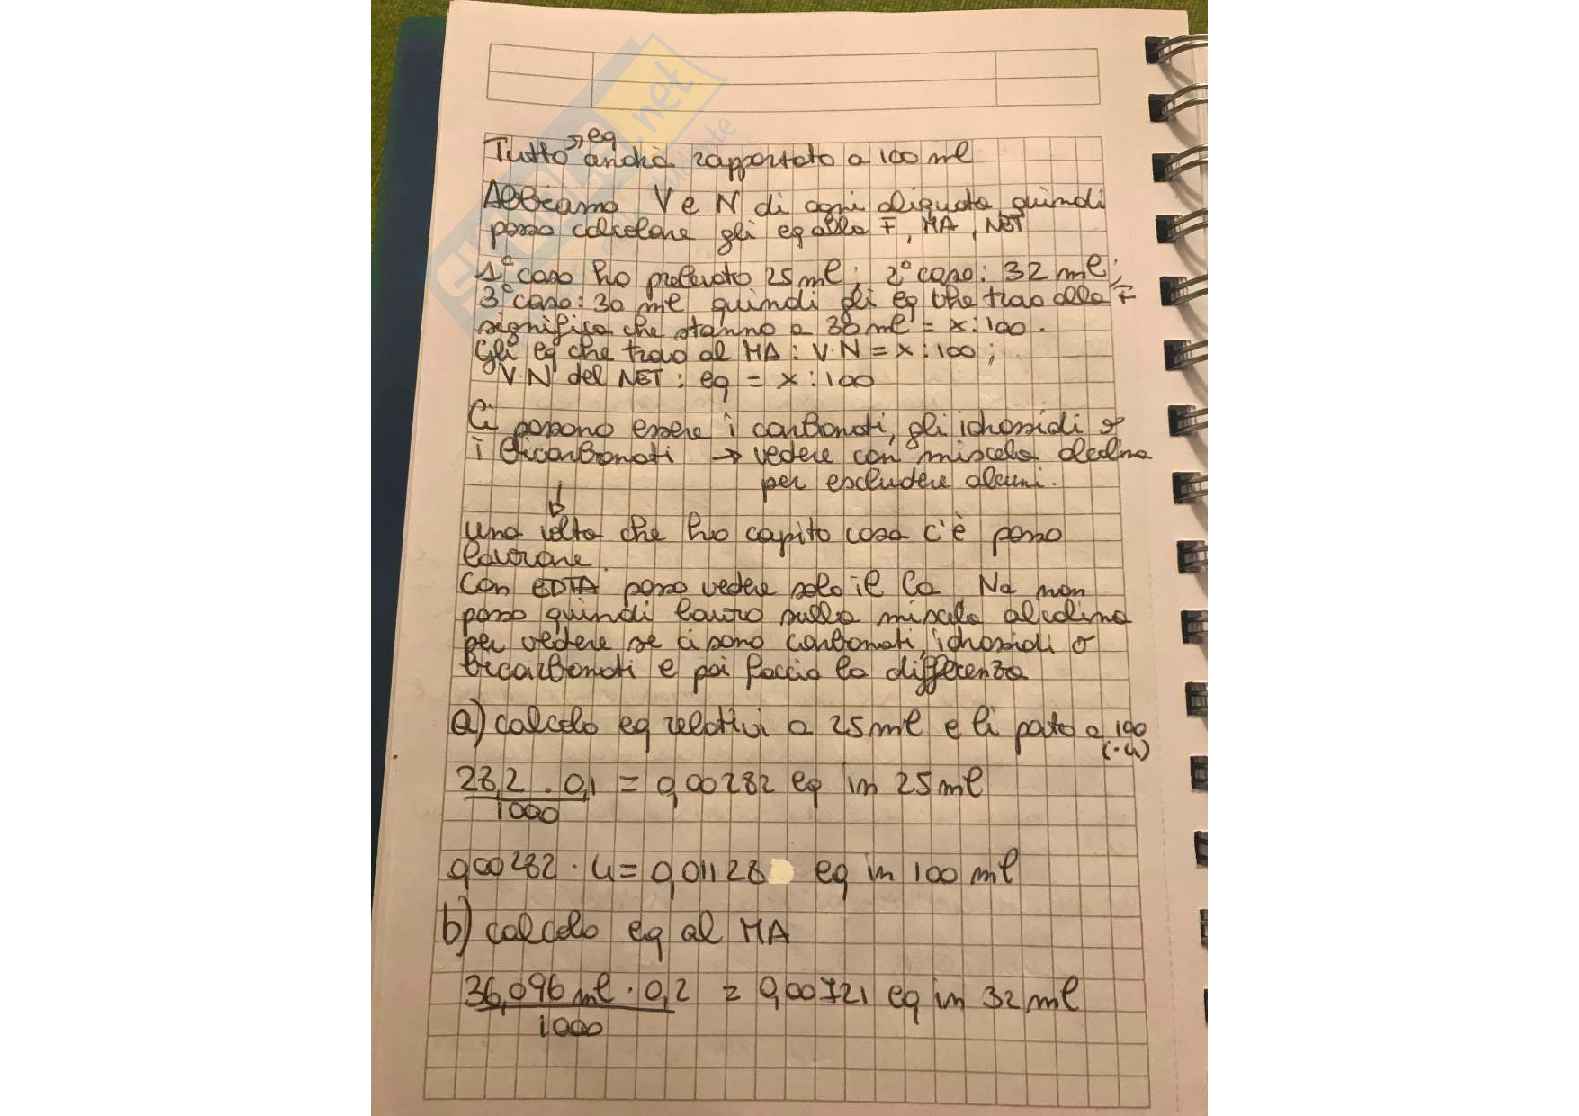 Tutto → eq andrà rapportato a 100 ml
Abbiamo V e N di ogni aliquota quindi
posso calcolare gli eq alla F, MA, NET
1° caso ho prelevato 25 ml; 2° caso: 32 ml;
3° caso: 30 ml quindi gli eq che trovo alla F
significa che stanno a 30 ml = x : 100.
Gli eq che trovo al MA : V·N = x : 100 ;
V·N del NET : eq = x : 100
Ci possono essere i carbonati, gli idrossidi o
i bicarbonati → vedere con miscela alcalina
per escludere alcuni.
Una volta che ho capito cosa c'è posso
lavorare.
Con EDTA posso vedere solo il Ca Na non
posso quindi lavoro sulla miscela alcalina
per vedere se ci sono carbonati, idrossidi o
bicarbonati e poi faccio la differenza
a) calcolo eq relativi a 25 ml e li porto a 100
(·4)
28,2 · 0,1 = 0,00282 eq in 25 ml
1000
0,00282 · 4 = 0,01128 eq in 100 ml
b) calcolo eq al MA
36,096 ml · 0,2 = 0,00721 eq in 32 ml
1000